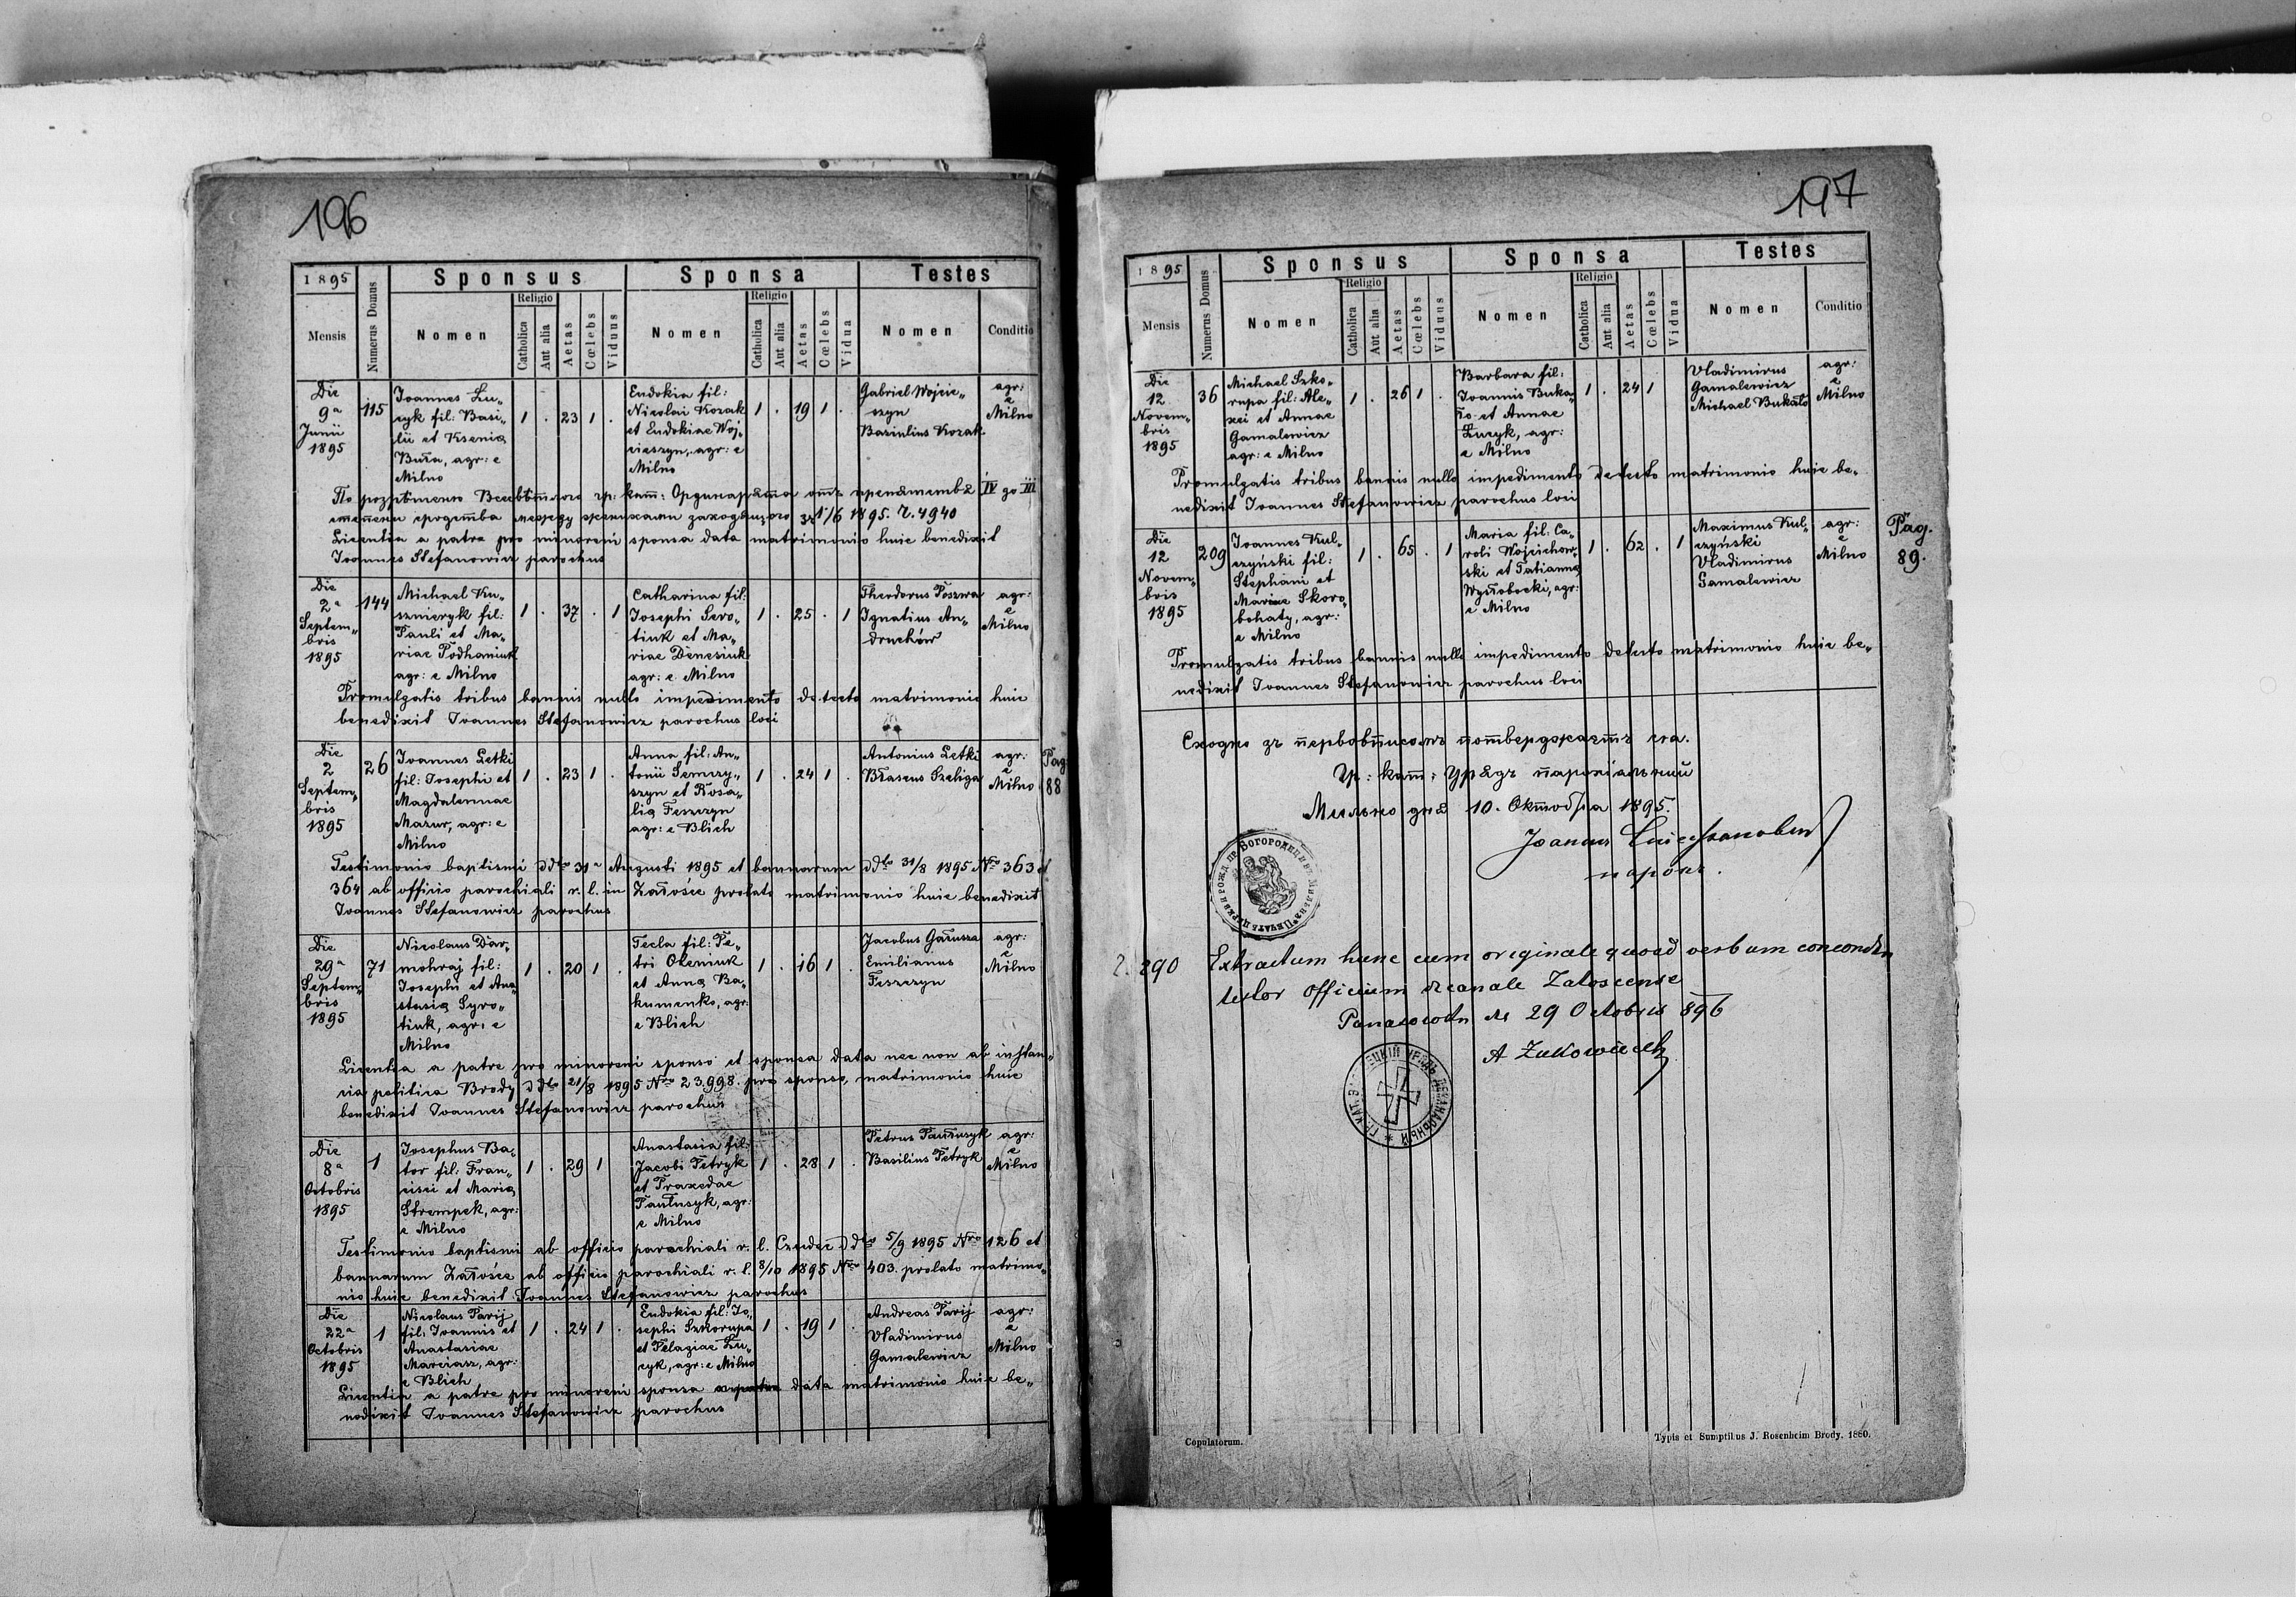 196
1895
Mensis
Numerus Domus
Sponsus
Nomen
Religio
Catholica
Aut alia
Aetas
Cœlebs
Viduus
Sponsa
Nomen
Religio
Catholica
Aut alia
Aetas
Cœlebs
Vidua
Testes
Nomen
Conditio
Die
9ª
Junii
1895
115
Joannes Łu„
cyk fil: Basi„
lii et Ksenia
Buła, agr: e
Milno
1 . 23 1 .
Eudokia fil:
Nicolai Kozak
et Eudokiae Woj„
cieszyn, agr: e
Milno
1 . 19 1 .
Gabriel Wojcie„
szyn
Basiulius Kozak
agr:
e
Milno
1/6 1895. Ч. 4940
Licentia a patre pro minoreni sponsa data matrimonio huic benedixit
Joannes Stefanowicz parochus
Die
2ª
Septem„
bris
1895
144
Michael Ku„
sznieryk fil:
Pauli et Ma„
riae Podhaniuk
agr: e Milno
1 . 37 . 1
Catharina fil:
Josephi Sero„
tiuk et Ma„
riae Denesiuk
agr: e Milno
1 . 25 . 1
Theodorus Poszwa
Ignatius An„
druchów
agr:
e
Milno
Promulgatis tribus bannis nullo impedimento detecto matrimonio huic
benedixit Joannes Stefanowicz parochus loci
Die
2
Septem„
bris
1895
26
Joannes Letki
fil: Josephi et
Magdalennae
Mazur, agr: e
Milno
1 . 23 1 .
Anna fil: An„
tonii Semczy„
szyn et Rosa„
lia Feszczyn
agr: e Blich
1 . 24 1 .
Antonius Letki
Błaseus Szeliga
agr:
e
Milno
Pag
88
Testimonio baptismi ddto 31ª Augusti 1895 et bannorum ddto 31/8 1895 Nro 363 et
364 ab officio parochiali r. l. in Załośce prolato matrimonio huic benedixit
Joannes Stefanowicz parochus
Die
29ª
Septem„
bris
1895
71
Nicolaus Dar„
mohraj fil:
Josephi et Ana„
stasia Syro„
tiuk, agr: e
Milno
1 . 20 1 .
Tecla fil: Pe„
tri Oleniuk
et Anna Ba„
kumenko, agr:
e Blich
1 . 16 1 .
Jacobus Gałusza
Emilianus
Feszczyn
agr:
e
Milno
Licentia a patre pro minoreni sponso et sponsa data nec non ab instan„
cia politica Brody ddto 21/8 1895 Nro 23.998. pro sponso, matrimonio huic
benedixit Joannes Stefanowicz parochus
Die
8ª
Octobris
1895
1
Josephus Ba„
tor fil: Fran„
cisci et Maria
Strempek, agr:
e Milno
1 . 29 1
Anastasia fil:
Jacobi Petryk
et Praxedae
Pawłusyk, agr:
e Milno
1 . 28 1 .
Petrus Pawłusyk
Basilius Petryk
agr:
e
Milno
Testimonio baptismi ab officio parochiali r. l. Czudec ddto 5/9 1895 Nro 126 et
bannorum Załośce ab officio parochiali r. l. 8/10 1895 Nro 403. prolato matrimo„
nio huic benedixit Joannes Stefanowicz parochus
Die
22ª
Octobris
1895
1
Nicolaus Parij
fil: Joannis et
Anastasiae
Marciasz, agr:
e Blich
1 . 24 1 .
Eudokia fil: Jo„
sephi Szkorupa
et Pelagiae Łu„
cyk, agr: e Milno
1 . 19 1 .
Andreas Parij
Vladimirus
Gamalewicz
agr:
e
Milno
Licentia a patre pro minoreni sponsa data matrimonio huic be„
nedixit Joannes Stefanowicz parochus
197
1895
Mensis
Numerus Domus
Sponsus
Nomen
Religio
Catholica
Aut alia
Aetas
Cœlebs
Viduus
Sponsa
Nomen
Religio
Catholica
Aut alia
Aetas
Cœlebs
Vidua
Testes
Nomen
Conditio
Die
12
Novem„
bris
1895
36
Michael Szko„
rupa fil: Ale„
xei et Annae
Gamalewicz
agr: e Milno
1 . 26 1 .
Barbara fil:
Joannis Buka„
ło et Annae
Łucyk, agr:
e Milno
1 . 24 1
Vladimirus
Gamalewicz
Michael Bukało
agr:
e
Milno
Promulgatis tribus bannis nullo impedimento detecto matrimonio huic be„
nedixit Joannes Stefanowicz parochus loci
Die
12
Novem„
bris
1895
209
Joannes Kul„
czyński fil:
Stephani et
Mariae Skoro„
bohaty, agr:
e Milno
1 . 65 . 1
Maria fil: Ca„
roli Wojcichow„
ski et Tatianna
Wysłobocki, agr:
e Milno
1 . 62 . 1
Maximus Kul„
czyński
Vladimirus
Gamalewicz
agr:
e
Milno
Pag.
89.
Promulgatis tribus bannis nullo impedimento detecto matrimonio huic be„
nedixit Joannes Stefanowicz parochus loci
Сходно зъ первописомъ потверджаєтъ ся.
Гр: кат: Урядъ парохіальный
Мильно дня 10. Октобра 1895.
парохъ.
290
Extractum hunc cum originale quoad verbum concordem
testor Officium decanale Zaloscense
29 Octobris 896
Copulatorum.
Typis et Sumptibus J. Rosenheim Brody. 1880.